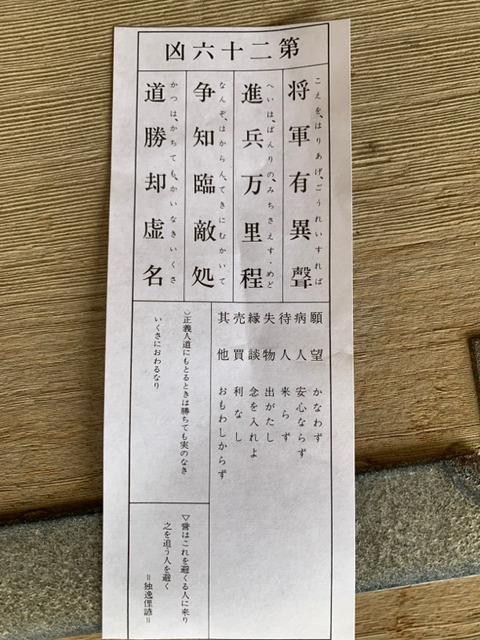 第二十六凶
将軍有異聲
こえを、はりあげ、ごうれいすれば
進兵万里程
へいは、ばんりの、みちさえす・めど
争知臨敵処
なんぞ、はからん、てきにむかいて
道勝却虚名
かつは、かちても、かいなきいくさ
願望 かなわず
病人 安心ならず
待人 来らず
失物 出がたし
縁談 念を入れよ
売買 利なし
其他 おもわしからず
正義人道にもとるときは勝ちても実のなき
いくさにおわるなり
▽誉はこれを避くる人に来り
之を追う人を避く
＝独逸俚諺＝